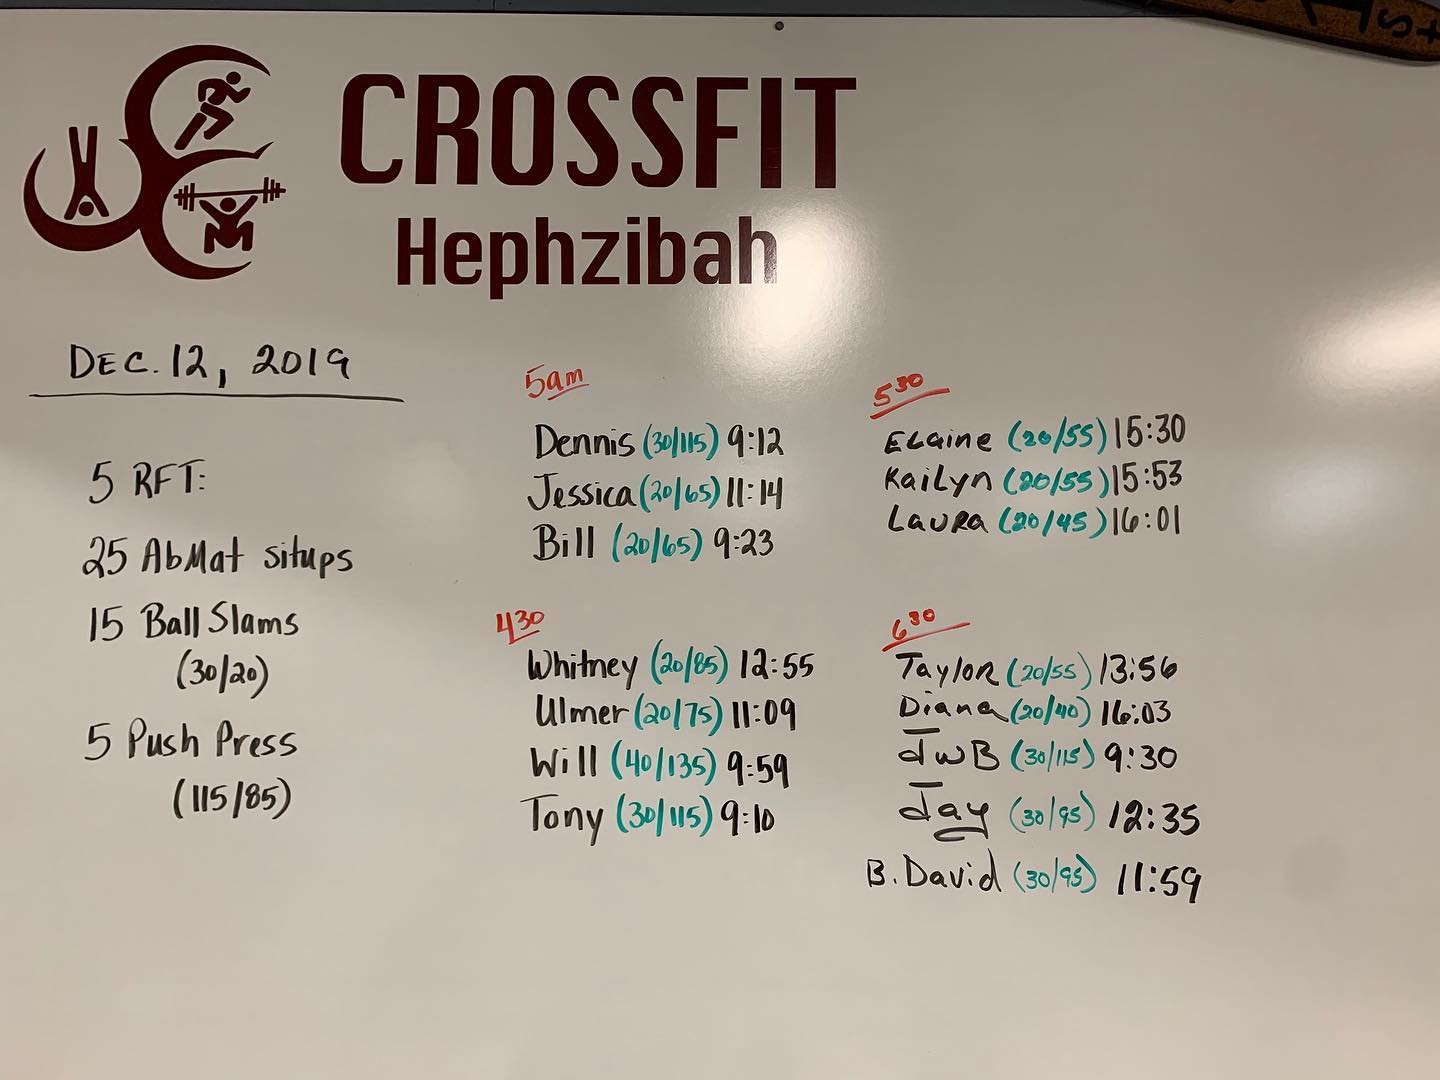 CROSSFIT
Hephzibah
DEC. 12, 2019
5 RFT:
25 AbMat situps
15 Ball Slams
(30/20)
5 Push Press
(115/85)
5am
Dennis (30/115) 9:12
Jessica (20/65) 11:14
Bill (20/65) 9:23
4 30
Whitney (20/85) 12:55
Ulmer (20/75) 11:09
Will (40/135) 9:59
Tony (30/115) 9:10
5 30
Elaine (20/55) 15:30
Kailyn (20/55) 15:53
Laura (20/45) 16:01
6 30
Taylor (20/55) 13:56
Diana (20/40) 16:03
JWB (30/115) 9:30
Jay (30/95) 12:35
B. David (30/95) 11:59